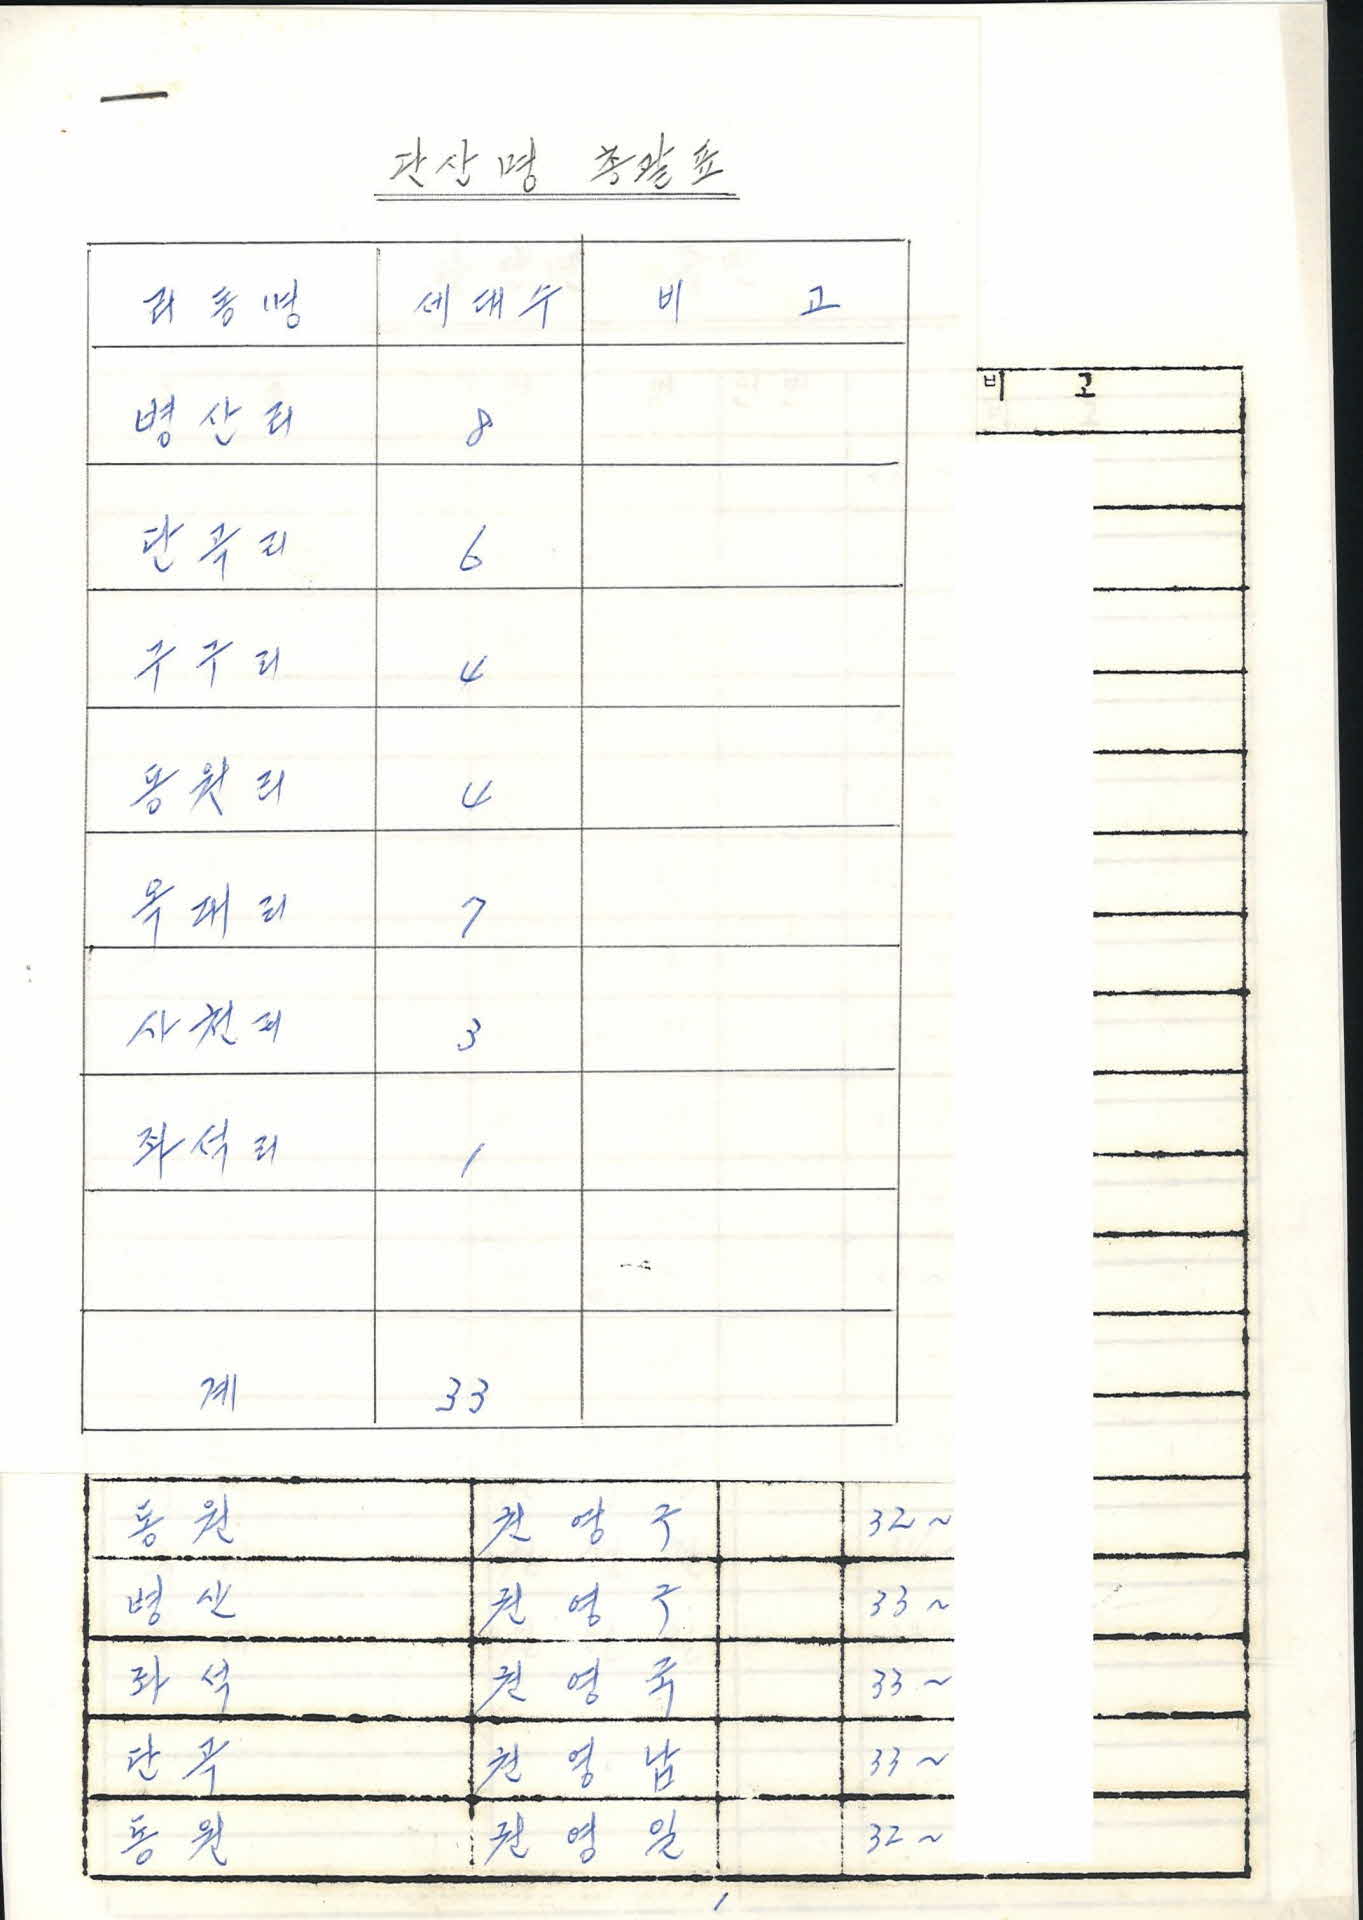 단산면 총괄표
리동명 세대수 비 고
병산리 8
단곡리 6
구구리 4
동원리 4
옥대리 7
사천리 3
좌석리 1
계 33
비 고
동원 권영구 32~
병산 권영구 33~
좌석 권영국 33~
단곡 권영남 33~
동원 권영일 32~
1